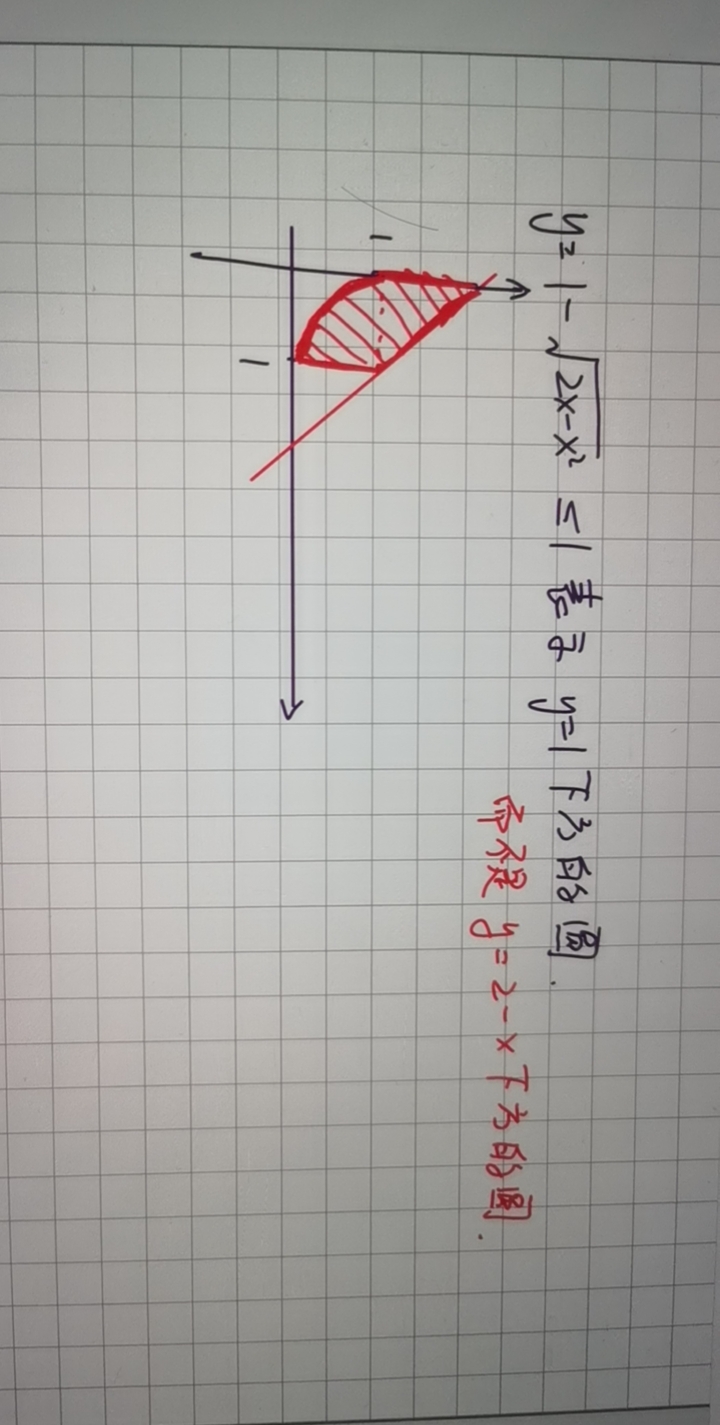 y=1-√(2x-x²) ≤1 表示 y=1下方的圆.
而不是 y=2-x下方的圆.
1
1